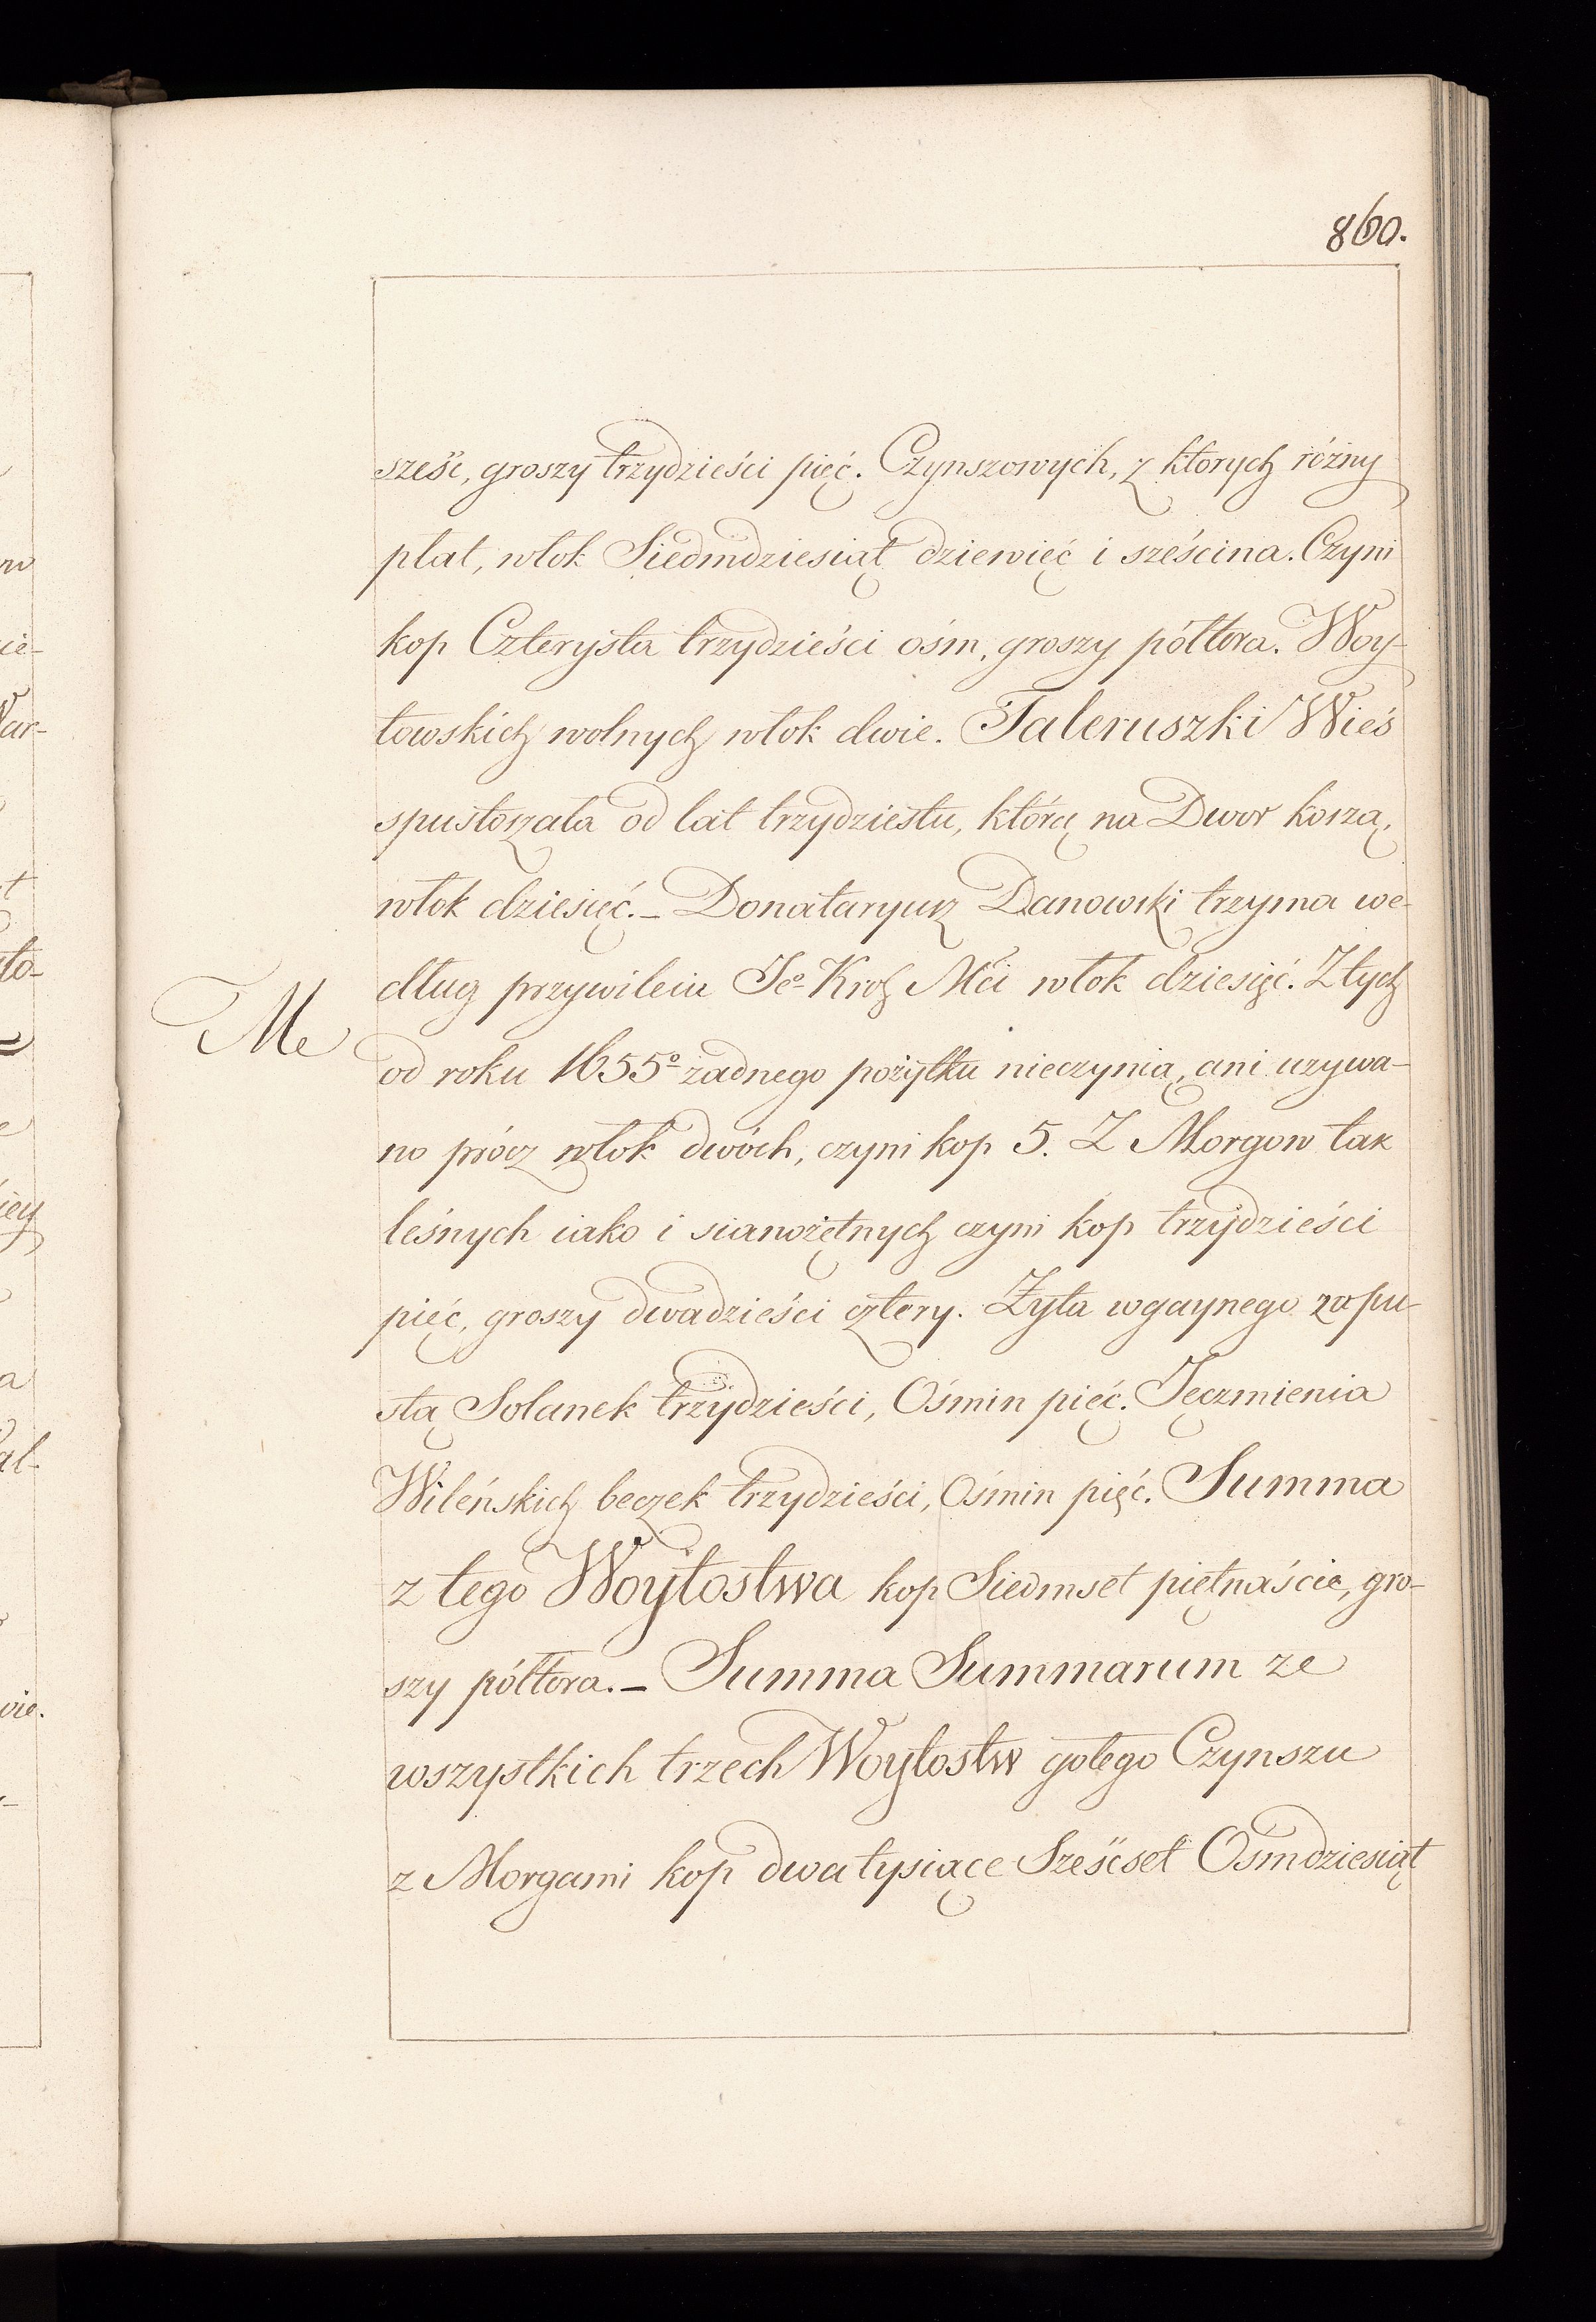 860.
sześć, groszy trzydzieści pięć. Czynszowych, z ktorych różny
płat, włok Siedmdziesiąt dziewięć i sześcina. Czyni
kop Czterysta trzydzieści ośm, groszy półtora. Woy-
towskich wolnych włok dwie. Taleruszki Wieś
spustoszała od lat trzydziestu, którą na Dwor koszą,
włok dziesięć. – Donataryusz Danowski trzyma we-
dług przywileiu Jeo Krolz Mći włok dziesięć. Z tych
Me
od roku 1655o żadnego pożytku nieczynią, ani uzywa-
no prócz włok dwóch, czyni kop 5. Z Morgow tak
leśnych iako i sianożętnych czyni kop trzydzieści
pięć, groszy dwadzieścia cztery. Żyta wgaynego zapu-
stą Solanek trzydzieści, Ośmin pięć. Jęczmienia
Wileńskich beczek trzydzieści, Ośmin pięć. Summa
z tego Woytostwa kop Siedmset piętnaście, gro-
szy półtora. – Summa Summarum ze
wszystkich trzech Woytostw gołego Czynszu
z Morgami kop dwa tysiące Sześćset Ośmdziesiąt